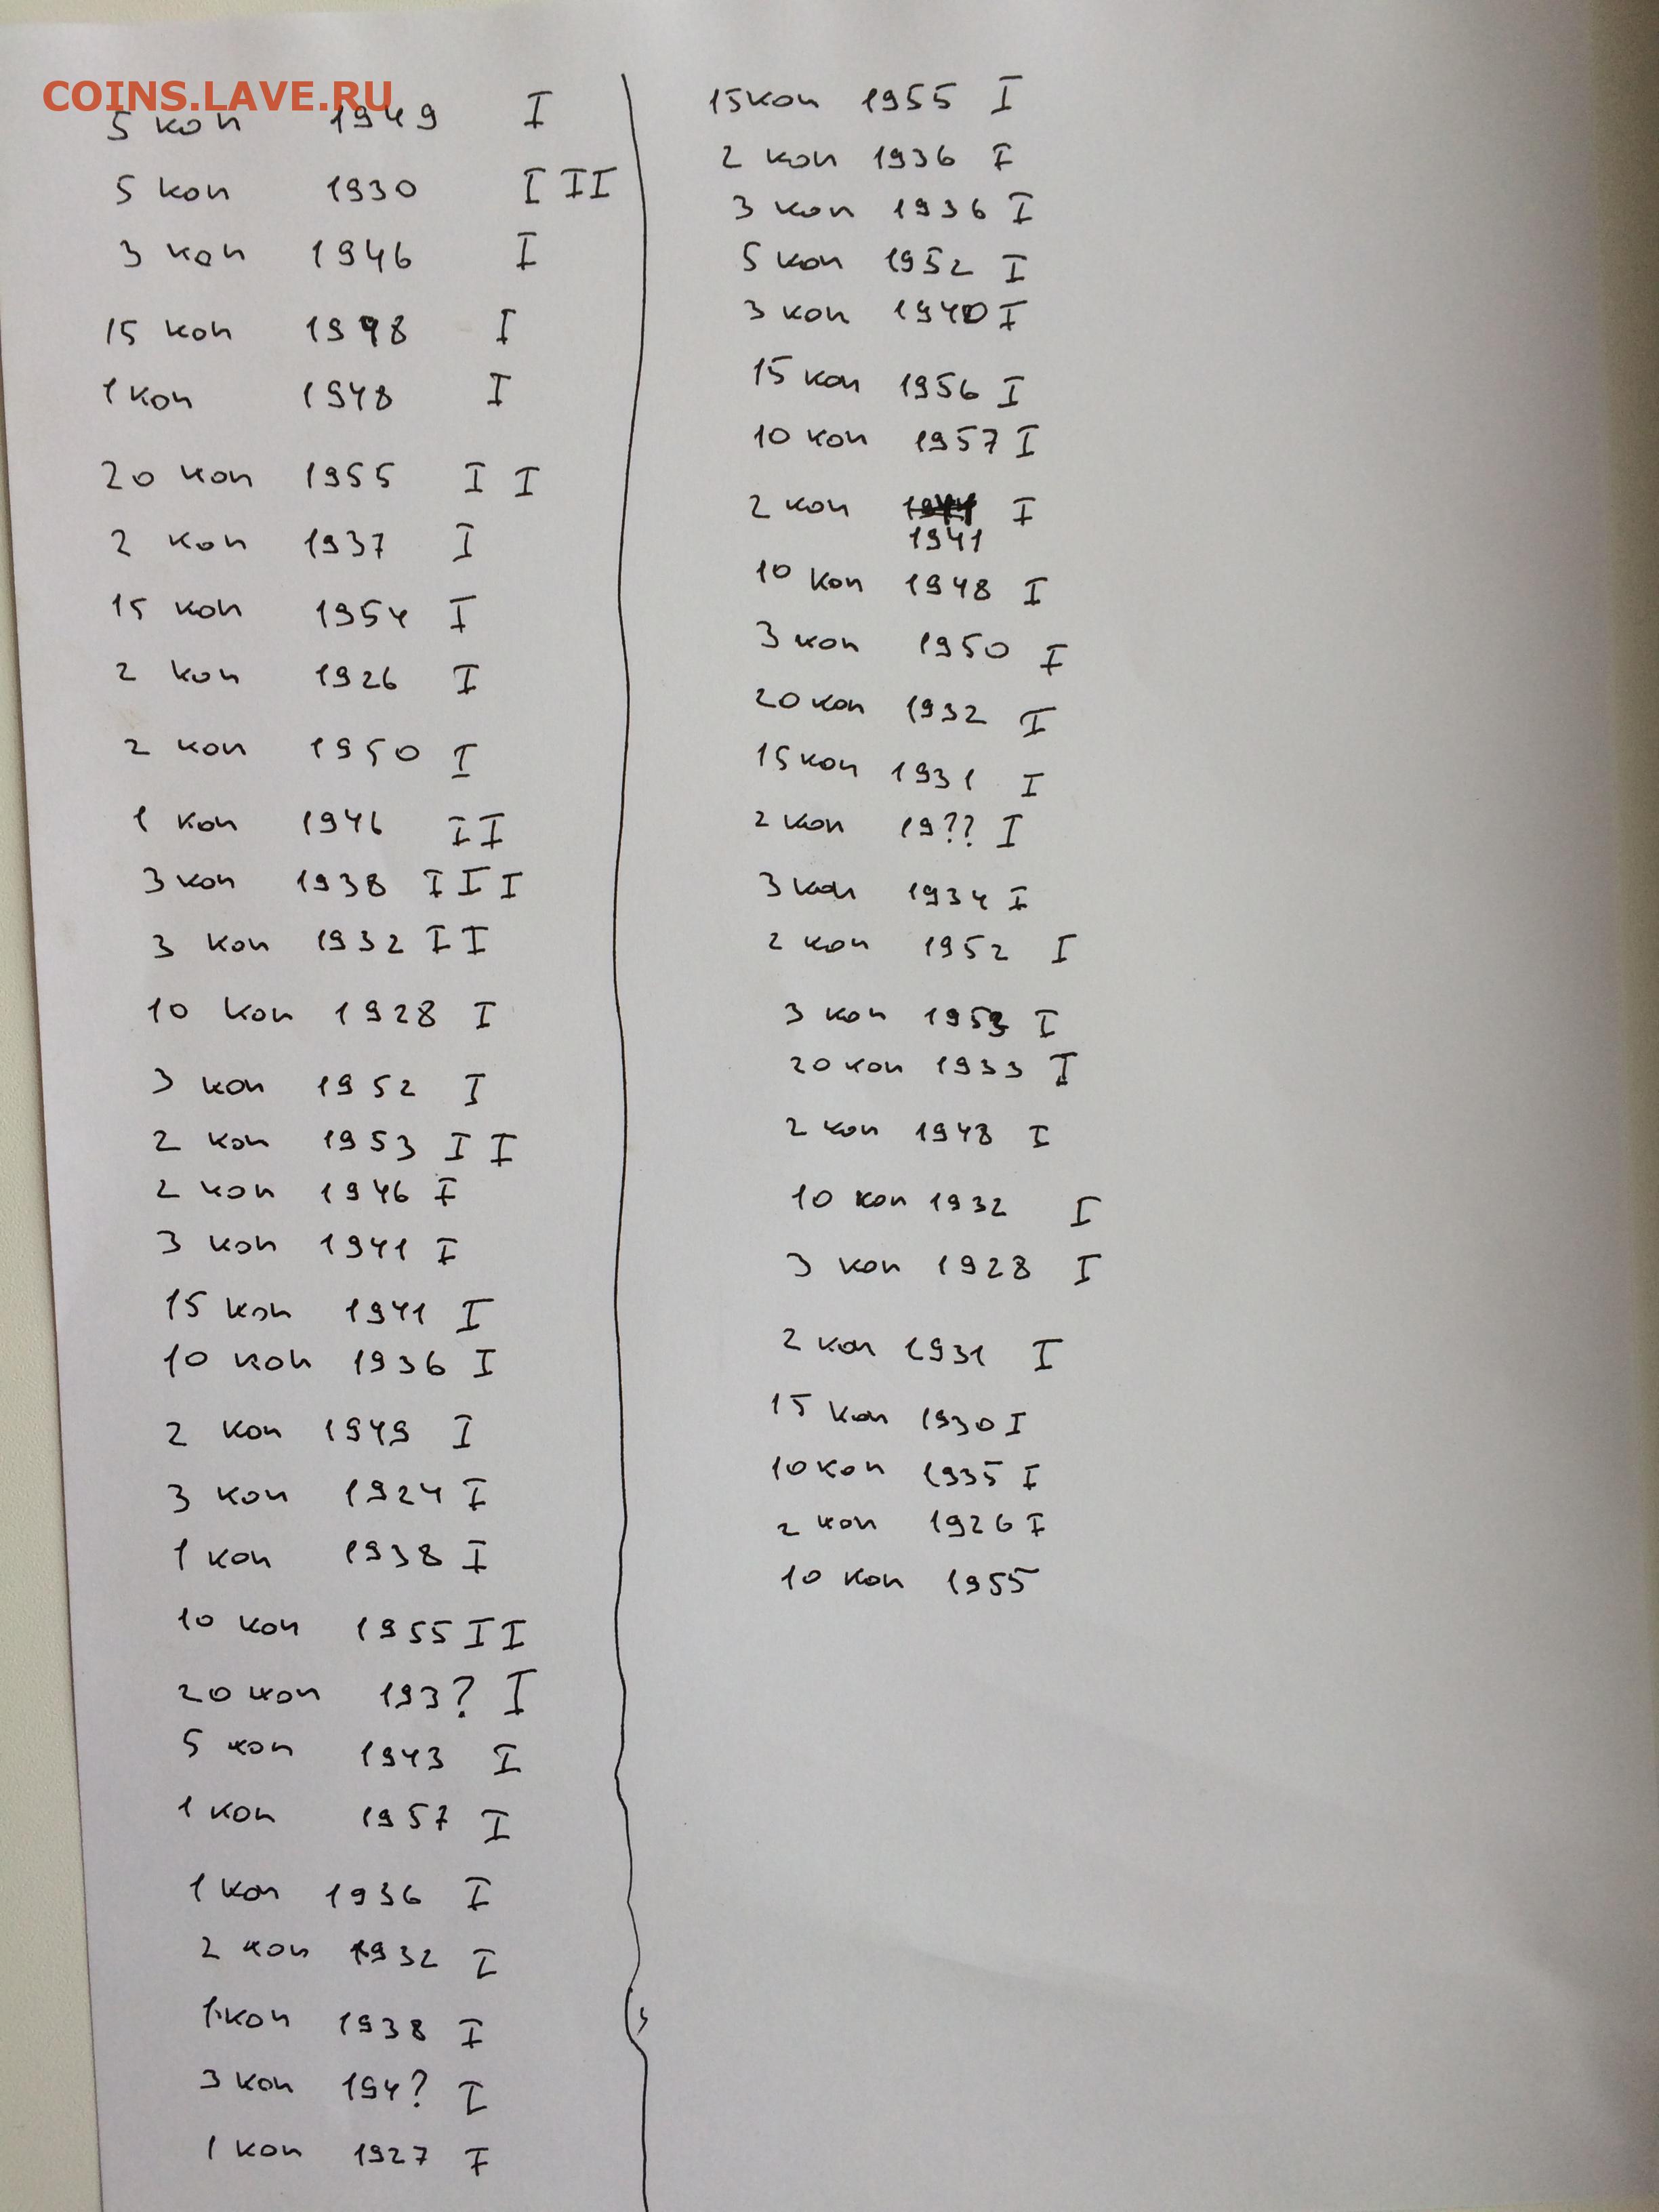 COINS.LAVE.RU
5 коп 1949 I
5 коп 1930 I I I
3 коп 1946 I
15 коп 1948 I
1 коп 1948 I
20 коп 1955 I I
2 коп 1937 I
15 коп 1954 I
2 коп 1926 I
2 коп 1950 I
1 коп 1946 I I
3 коп 1938 I I I
3 коп 1932 I I
10 коп 1928 I
3 коп 1952 I
2 коп 1953 I I
2 коп 1946 I
3 коп 1941 I
15 коп 1941 I
10 коп 1936 I
2 коп 1949 I
3 коп 1924 I
1 коп 1938 I
10 коп 1955 I I
20 коп 193? I
5 коп 1943 I
1 коп 1957 I
1 коп 1936 I
2 коп 1932 I
1 коп 1938 I
3 коп 194? I
1 коп 1927 I
15 коп 1955 I
2 коп 1936 I
3 коп 1936 I
5 коп 1952 I
3 коп 1940 I
15 коп 1956 I
10 коп 1957 I
2 коп I
1941
10 коп 1948 I
3 коп 1950 I
20 коп 1932 I
15 коп 1931 I
2 коп 19?? I
3 коп 1934 I
2 коп 1952 I
3 коп I
20 коп 1933 I
2 коп 1948 I
10 коп 1932 I
3 коп 1928 I
2 коп 1931 I
15 коп 1930 I
10 коп 1935 I
2 коп 1926 I
10 коп 1955